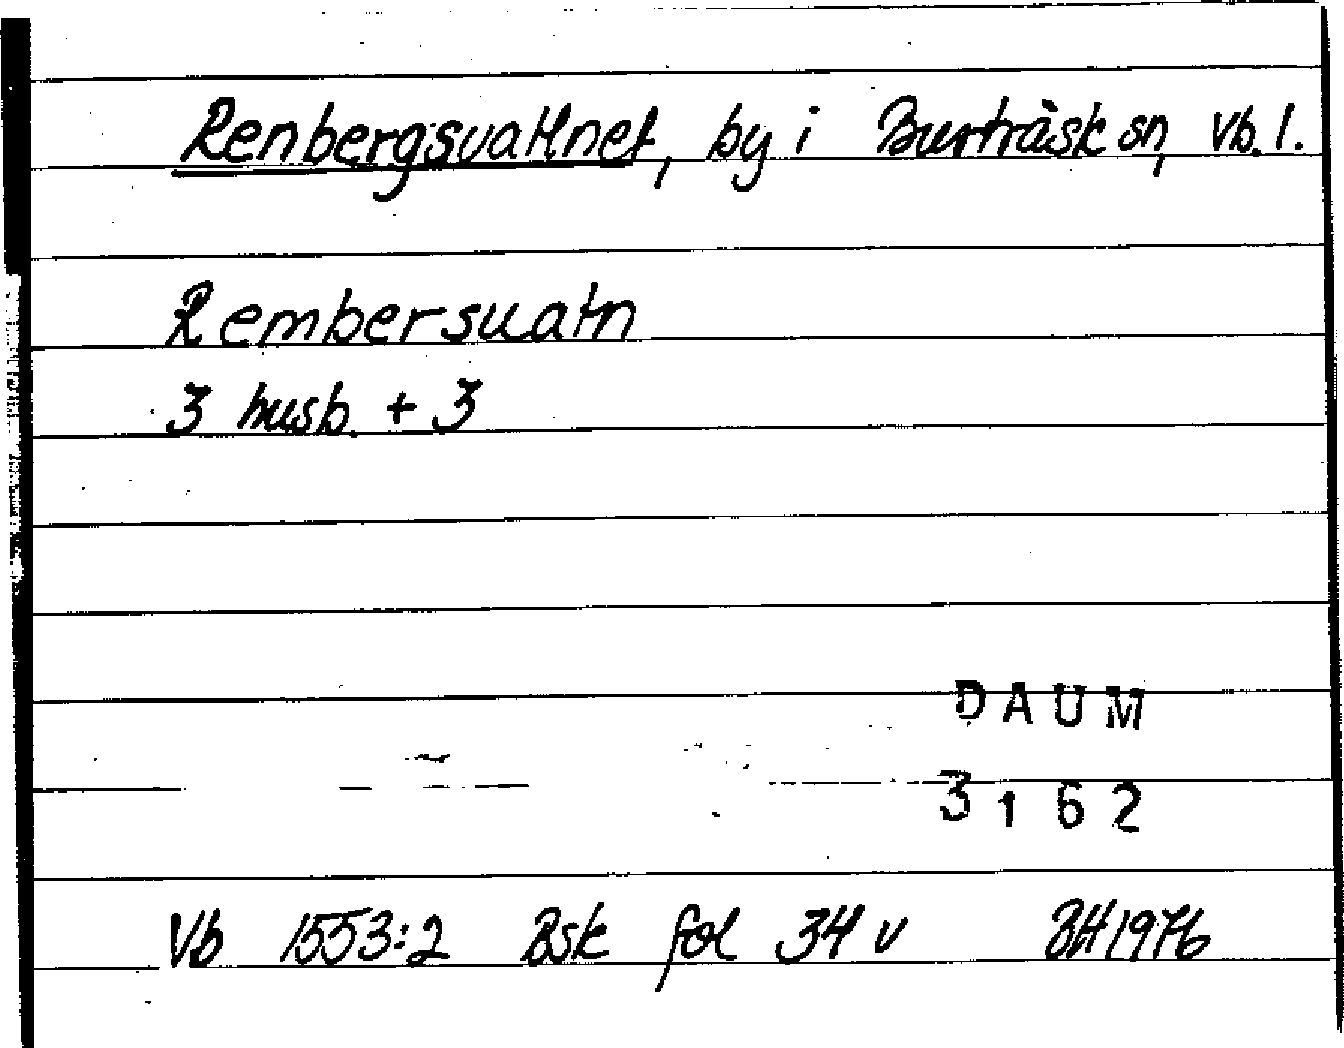 Renbergsvattnet, by i Burträsk sn, Vb. l.
Rembersuatn
3 husb. + 3
DAUM
3162
Vb 1553:2 Bsk fol 34 v BH 1976